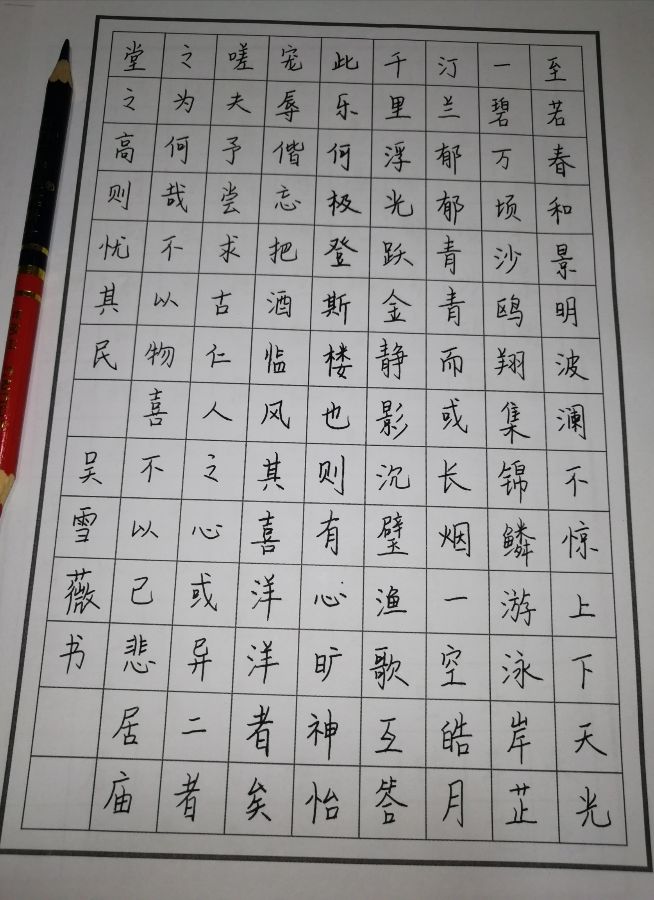 至若春和景明波澜不惊上下天光
一碧万顷沙鸥翔集锦鳞游泳岸芷
汀兰郁郁青青而或长烟一空皓月
千里浮光跃金静影沉璧渔歌互答
此乐何极登斯楼也则有心旷神怡
宠辱偕忘把酒临风其喜洋洋者矣
嗟夫予尝求古仁人之心或异二者
之为何哉不以物喜不以己悲居庙
堂之高则忧其民 吴雪薇书